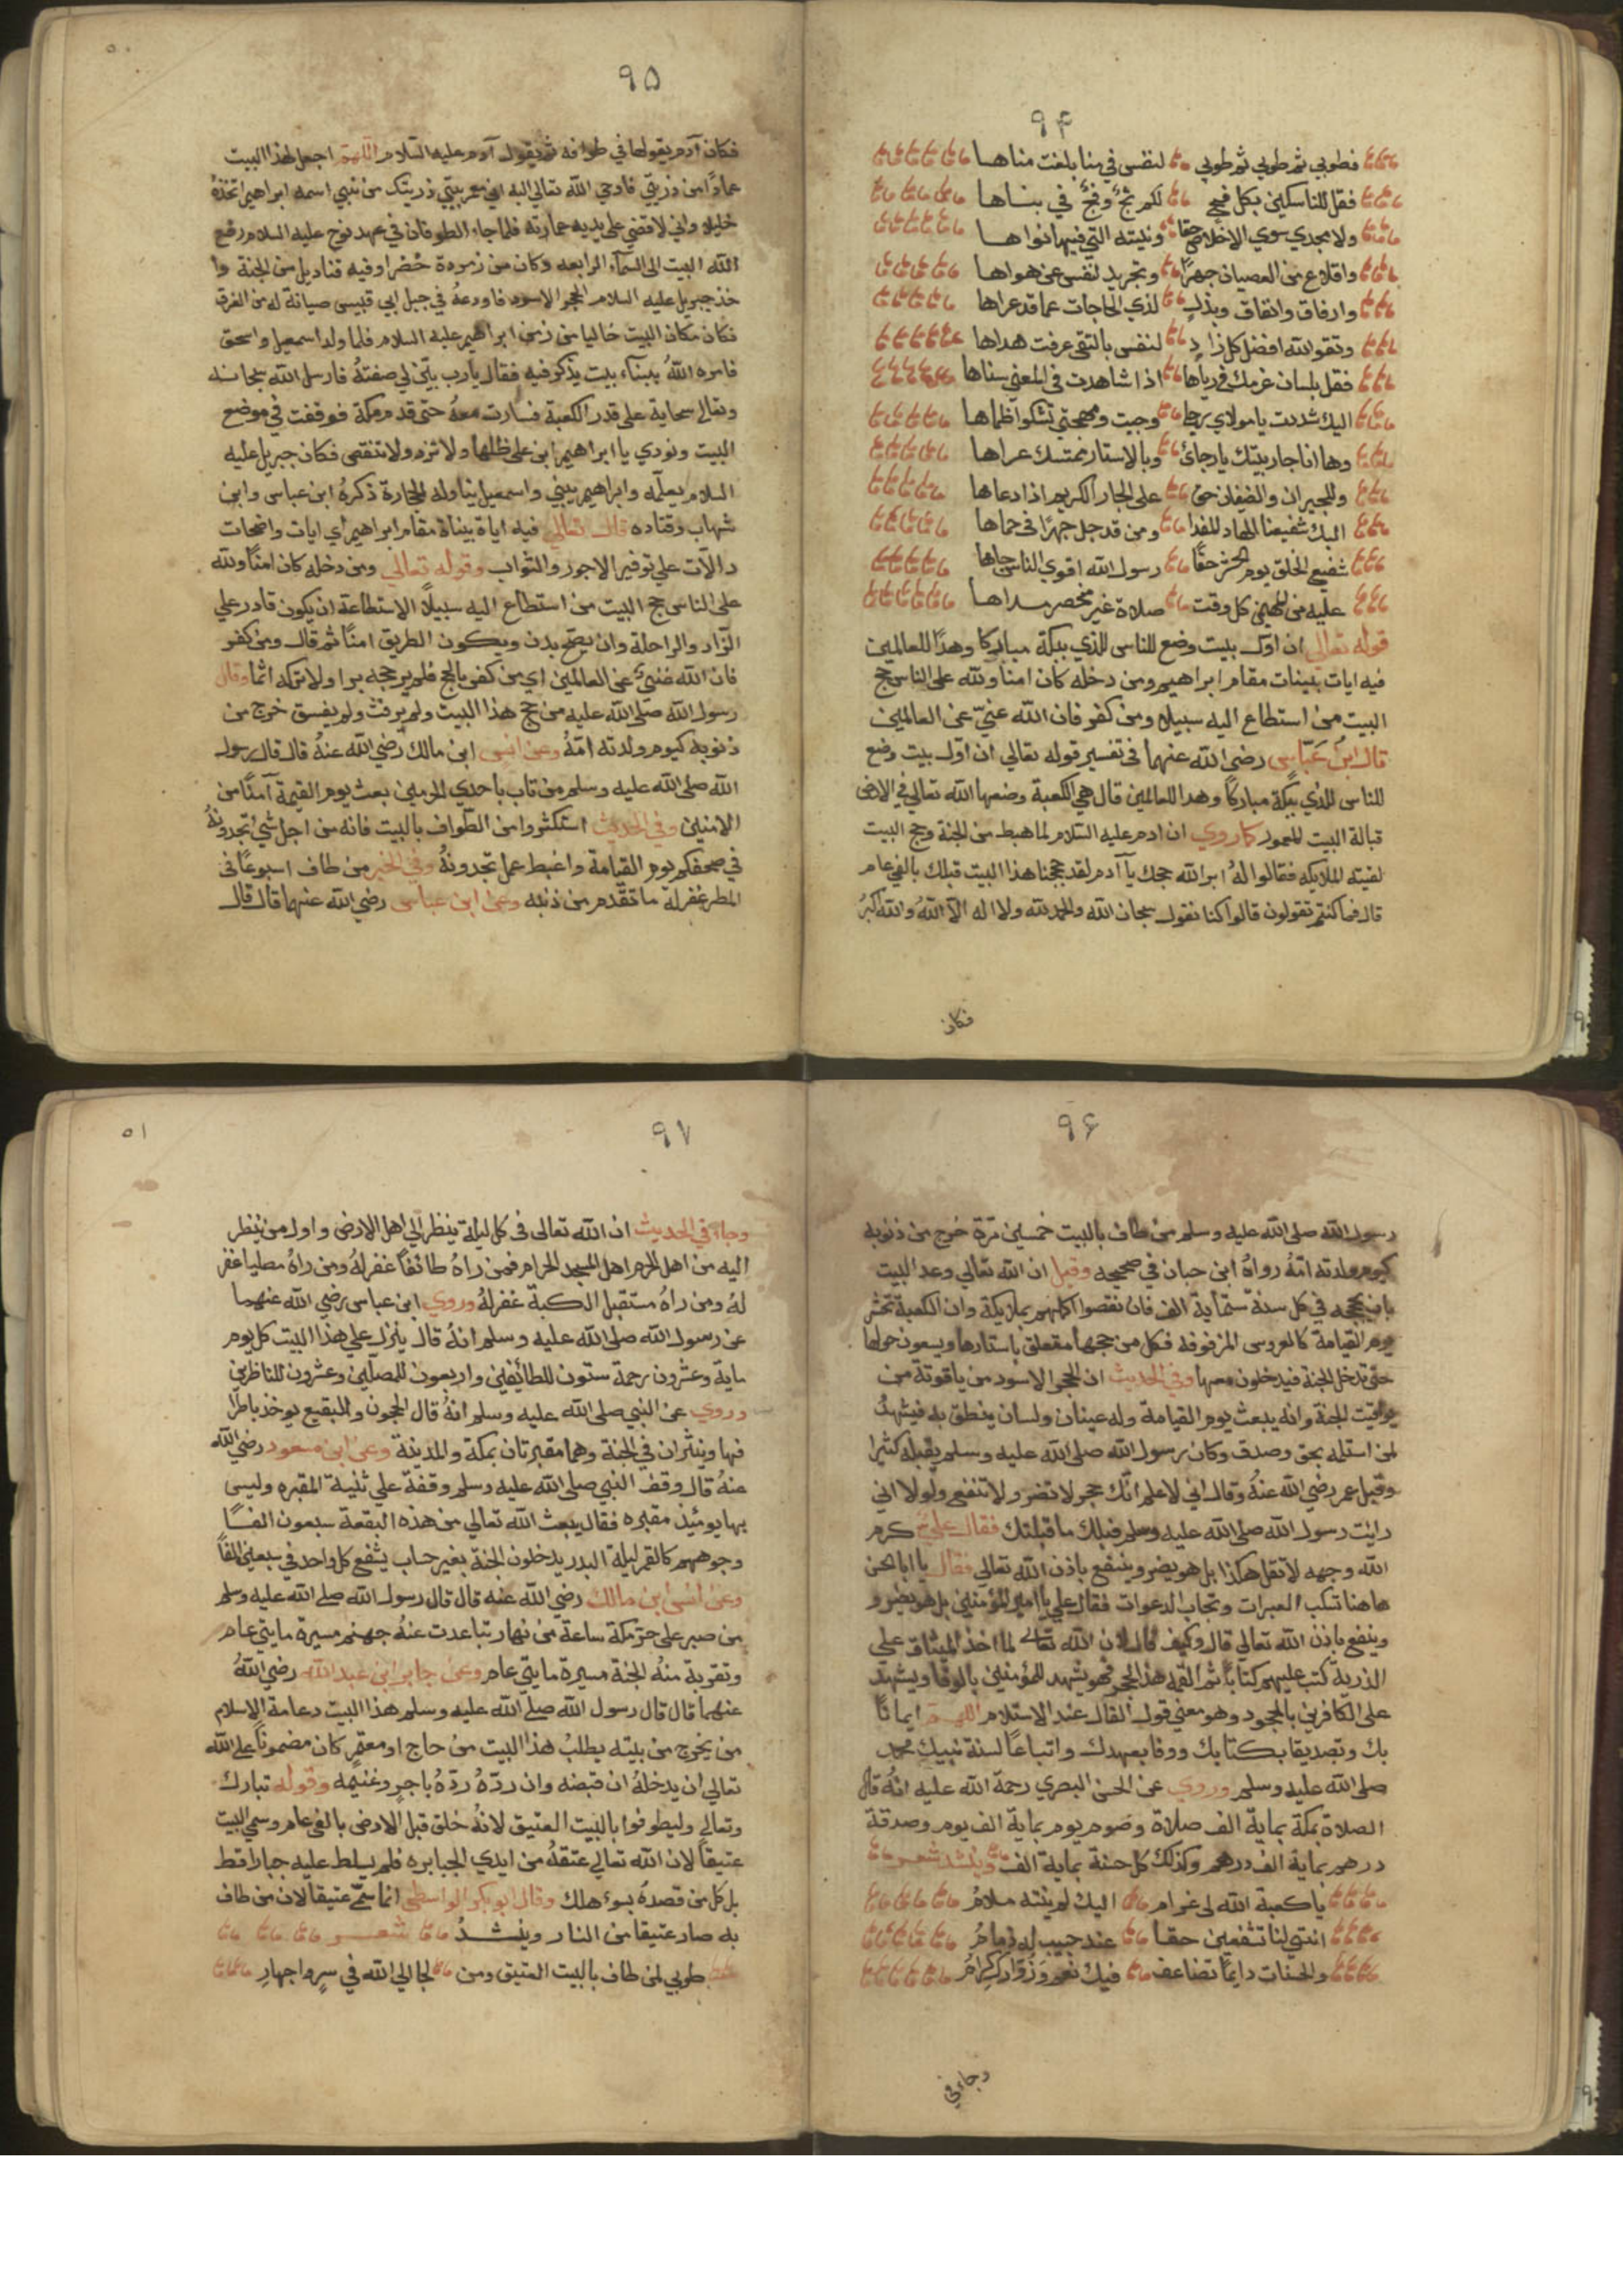 ٩۴
فطوبي ثم طوبي ثم طوبي لنفس في منا بلغت مناهـا
فقل للناسكين بكل فج لكم ثج وفج في بنـاها
ولا يجدي سوي الاخلاص حقا ونيته التي فيها نواهـا
واقلاع من العصيان جهرًا وتجريد لنفس عن هواها
وارفاق وانفاق وبذل لذي الحاجات عما قد عراها
وتقوالله افضل كل زاد لنفس بالتقي عرفت هداها
فقل بلسان عزمك في رباها اذا شاهدت في المعني سناها
اليك شددت يا مولاي رحلي وجيت ومهجتي تشكوا ظماها
وها انا جار بيتك يا رجائ وبالاستار نمتسك عراها
وللجيران والضيفان حق علي الجار الكريم اذا دعاها
اليك شفيعنا الهاد المفدا ومن قد حل جهرًا في حماها
شفيع الخلق يوم الحشر حقًا رسول الله اقوي الناس جاها
عليه من المهيمن كل وقت صلاة غير منحصر مداهـا
قوله تعالي ان اول بيت وضع للناس للذي ببكة مباركا وهدًا للعالمين
فيه ايات بينات مقام ابراهيم ومن دخله كان امنا ولله علي الناس حج
البيت من استطاع اليه سبيلا ومن كفر فان الله غنيّ عن العالمين
قال ابن عَبّاس رضي الله عنهما في تفسير قوله تعالي ان اوّل بيت وضع
للناس للذي ببكة مباركًا وهدا للعالمين قال هي الكعبة وضعها الله تعالي في الارض
قبالة البيت المعمور كما روي ان ادم عليه السّلام لما هبط من الجنة وحج البيت
لقيته الملايكه فقالوا لهُ ابر الله حجك يا آدم لقد حججنا هذا البيت قبلك بالفي عام
قال فما كنتم تقولون قالوا كنا نقول سبحان الله والحمد لله ولا اله الا اللهُ والله اكبرُ
فكان
٩۵
٥٠
فكان آدم يقولها في طوافه ثم يقول آدم عليه السّلام اللهمّ اجعل لهذا البيت
عمارًا من ذريتي فاوحي الله تعالي اليه اني معمر بيتي ذريتك من نبي اسمه ابراهيم اتخذهُ
خليلا واني لاقضي علي يديه عمارته فلما جاء الطوفان في عهد نوح عليه السلام رفع
الله البيت الي السّمآء الرابعه وكان من زمردة خضرا وفيه قناديل من الجنة وا
خذ جبريل عليه السلام الحجر الاسود فاودعهُ في جبل ابي قبيس صيانة له من الغرق
فكان مكان البيت خاليا من زمن ابراهيم عليه السلام فلما ولد اسمعيل واسحق
فامره اللهُ ببنآء بيت يذكر فيه فقال يارب بيّن لي صفتهُ فارسل الله سبحانه
وتعالي سحابة علي قدر الكعبة فسارت معهُ حتي قدم مكة فوقفت في موضع
البيت ونودي يا ابراهيم ابن علي ظلها ولا تزد ولا تنقص فكان جبريل عليه
السلام يعلّمه وابراهيم يبني واسمعيل يناوله الحجارة ذكرهُ ابن عباس وابن
شهاب وقتاده قال تعالي فيه اياة بيناة مقام ابراهيم اي ايات واضحات
دالآت علي توفير الاجور والثواب وقوله تعالي ومن دخله كان امنًا ولله
علي الناس حج البيت من استطاع اليه سبيلًا الاستطاعة ان يكون قادر علي
الزاد والراحلة وان يصح بدن ويكون الطريق امنًا ثم قال ومن كفر
فان الله غني عن العالمين اي من كفر بالحج فلم ير حجه برا ولا تركه اثما وقال
رسول الله صلّي الله عليه من حج هذا البيت ولم يرفث ولم يفسق خرج من
ذنوبه كيوم ولدته امّهُ وعن انس ابن مالك رضي الله عنهُ قال قال رسول
الله صلي الله عليه وسلم من مات بأحدي الحرمين بعث يوم القيمة آمنًا من
الامنين وفي الحديث استكثروا من الطواف بالبيت فانه من اجل شئ تجدونهُ
في صحفكم يوم القيامة واغبط عمل تجدونهُ وفي الخبر من طاف اسبوعًا في
المطر غفر له ما تقدّم من ذنبه وعن ابن عباس رضي الله عنهما قال قال
٩۶
رسول الله صلي الله عليه وسلم من طاف بالبيت خمسين مرّة خرج من ذنوبه
كيوم ولدته امّهُ رواهُ ابن حبان في صحيحه وقيل ان الله تعالي وعد البيت
بان يحجه في كل سنة ستّماية الف فان نقصوا اكملهم بملايكة وان الكعبة تحشر
يوم القيامة كالعروس المزفوفة فكل من حجها متعلق باستارها ويسعون حولها
حتي تدخل الجنة فيدخلون معها وفي الحديث ان الحجر الاسود من ياقوتة من
يواقيت الجنة وانه يبعث يوم القيامة وله عينان ولسان ينطق به فيشهدُ
لمن استلمه بحق وصدق وكان رسول الله صلي الله عليه وسلم يقبله كثيرا
وقبل عمر رضي الله عنهُ وقال اني لاعلم انّك حجر لا تضر ولا تنفع ولولا اني
رايت رسول الله صلي الله عليه وسلم قبلك ما قبلتك فقال علي كرم
الله وجهه لا تقل هكذا بل هو يضر وينفع باذن الله تعالي فقال يا ابا الحسن
هاهنا تسكب العبرات وتجاب الدعوات فقال علي يا امير المؤمنين بل هو يضر و
وينفع باذن الله تعالي قال وكيف قال لان الله تعالي لما اخذ الميثاق علي
الذرية كتب عليهم كتابا ثم القمه هذا الحجر فهو يشهد للمؤمنين بالوفا ويشهد
علي الكافرين بالجحود وهو معني قول القال عند الاستلام اللهم ايمانًا
بك وتصديقا بكتابك ووفا بعهدك واتباعًا لسنة نبيك محمد
صلي الله عليه وسلم وروي عن الحسن البصري رحمة الله عليه انّهُ قال
الصلاة بمكة بماية الف صلاة وصوم يوم بماية الف يوم وصدقة
درهم بماية الف درهم وكذلك كل حسنة بماية الف وينشد شعر
يا كعبة الله لي غرام اليك لم يثنه ملامُ
انتي لنا تشفعين حقا عند حبيب له ذمامُ
والحسنات دايمًا تضاعف فيك نعم وزوّارك كِرامُ
وجاء في
٩٧
٥١
وجاءَ في الحديث ان الله تعالي في كل ليلة ينظر الي اهل الارض واول من ينظر
اليه من اهل الحرم اهل المسجد الحرام فمن راهُ طائفًا غفر لهُ ومن راهُ مصليا غفر
لهُ ومن راهُ مستقبل الكعبة غفر لهُ وروي ابن عباس رضي الله عنهما
عن رسول الله صلي الله عليه وسلم انهُ قال ينزل علي هذا البيت كل يوم
ماية وعشرون رحمة ستون للطائفين واربعون للمصلّين وعشرون للناظرين
وروي عن النبي صلي الله عليه وسلم انهُ قال الحجون والبقيع يوخذ باطرا
فها وينثران في الجنة وهما مقبرتان بمكة والمدينة وعن ابن مسعود رضي الله
عنهُ قال وقف النبي صلي الله عليه وسلم وقفة علي ثنية المقبره وليس
بها يومئذ مقبره فقال يبعث الله تعالي من هذه البقعة سبعون الفـًا
وجوههم كالقمر ليلة البدر يدخلون الجنة بغير حساب يشفع كل واحد في سبعين الفًا
وعن انس ابن مالك رضي الله عنه قال قال رسول الله صلي الله عليه وسلم
من صبر علي حرّ مكة ساعة من نهار تباعدت عنهُ جهنم مسيرة مايتي عام
وتقربة منهُ الجنة مسيرة مايتي عام وعن جابر ابن عبد الله رضي اللهُ
عنهما قال قال رسول الله صلي الله عليه وسلم هذا البيت دعامة الاسلام
من يخرج من بيته يطلبُ هذا البيت من حاج او معتمر كان مضمونًا علي الله
تعالي ان يدخلهُ ان قبضه وان ردّهُ ردّهُ باجر وغنيمه وقوله تبارك
وتعالي وليطوفوا بالبيت العتيق لانهُ خلق قبل الارض بالفي عام وسمي البيت
عتيقا لان الله تعالي عتقهُ من ايدي الجبابره فلم يسلط عليه جبارا قط
بل كل من قصدهُ بسوء هلك وقال ابو بكر الواسطي انما سمّي عتيقا لان من طاف
به صار عتيقا من النار وينشـدُ شعـر
طوبي لمن طاف بالبيت العتيق ومن لجا الي الله في سرٍ واجهارِ